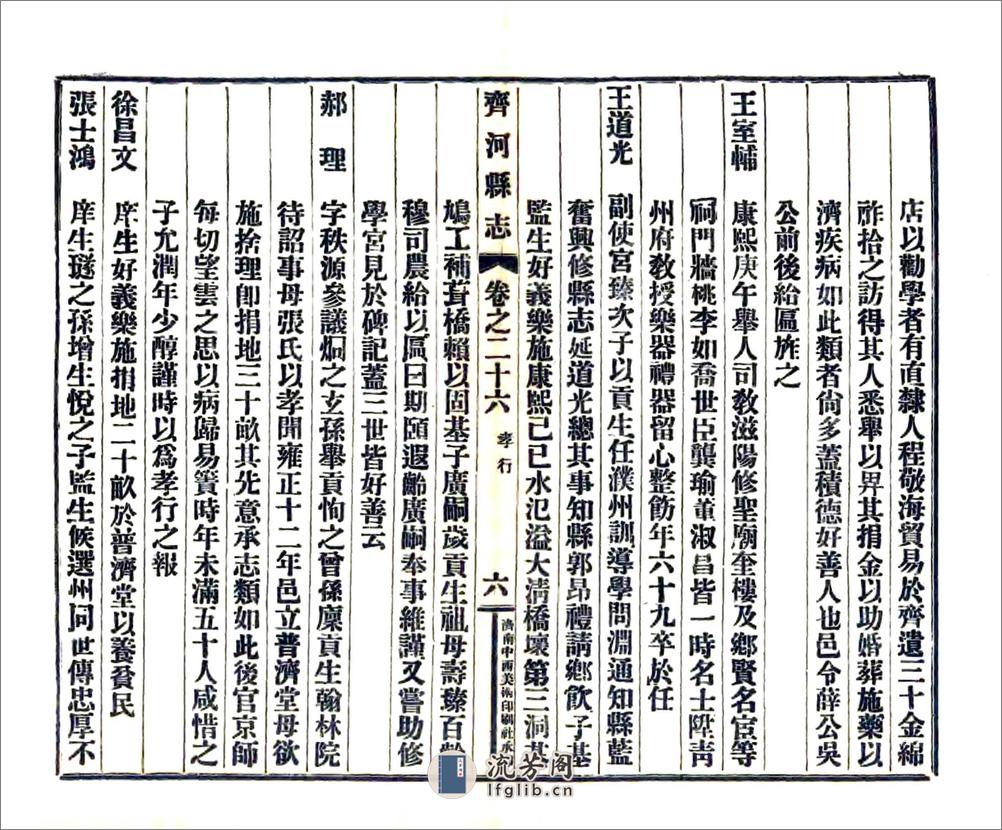 店以勸學者有直隸人程敬海貿易於齊遺三十金綿
祚拾之訪得其人悉舉以畀其捐金以助婚葬施藥以
濟疾病如此類者尙多蓋積德好善人也邑令薛公吳
公前後給匾旌之
王室輔 康熙庚午舉人司敎滋陽修聖廟奎樓及鄉賢名宦等
祠門牆桃李如喬世臣龔瑜董淑昌皆一時名士陞靑
州府敎授樂器禮器留心整飭年六十九卒於任
王道光 副使宮臻次子以貢生任濮州訓導學問淵通知縣藍
奮興修縣志延道光總其事知縣郭昂禮請鄉飮子基
監生好義樂施康熙己巳水氾溢大淸橋壞第三洞基
齊河縣志 卷之二十六 孝行 六 濟南中西美術印刷社承
鳩工補葺橋賴以固基子廣嗣歲貢生祖母壽臻百齡
穆司農給以匾曰期頤遐齡廣嗣奉事維謹又嘗助修
學宮見於碑記蓋三世皆好善云
郝理 字秩源參議炯之玄孫舉貢恂之曾孫廩貢生翰林院
待詔事母張氏以孝聞雍正十二年邑立普濟堂母欲
施捨理卽捐地三十畝其先意承志類如此後官京師
每切望雲之思以病歸易簀時年未滿五十人咸惜之
子允潤年少醇謹時以爲孝行之報
徐昌文 庠生好義樂施捐地二十畝於普濟堂以養貧民
張士鴻 庠生璲之孫增生悅之子監生候選州同世傳忠厚不
流芳阁
lfglib.cn